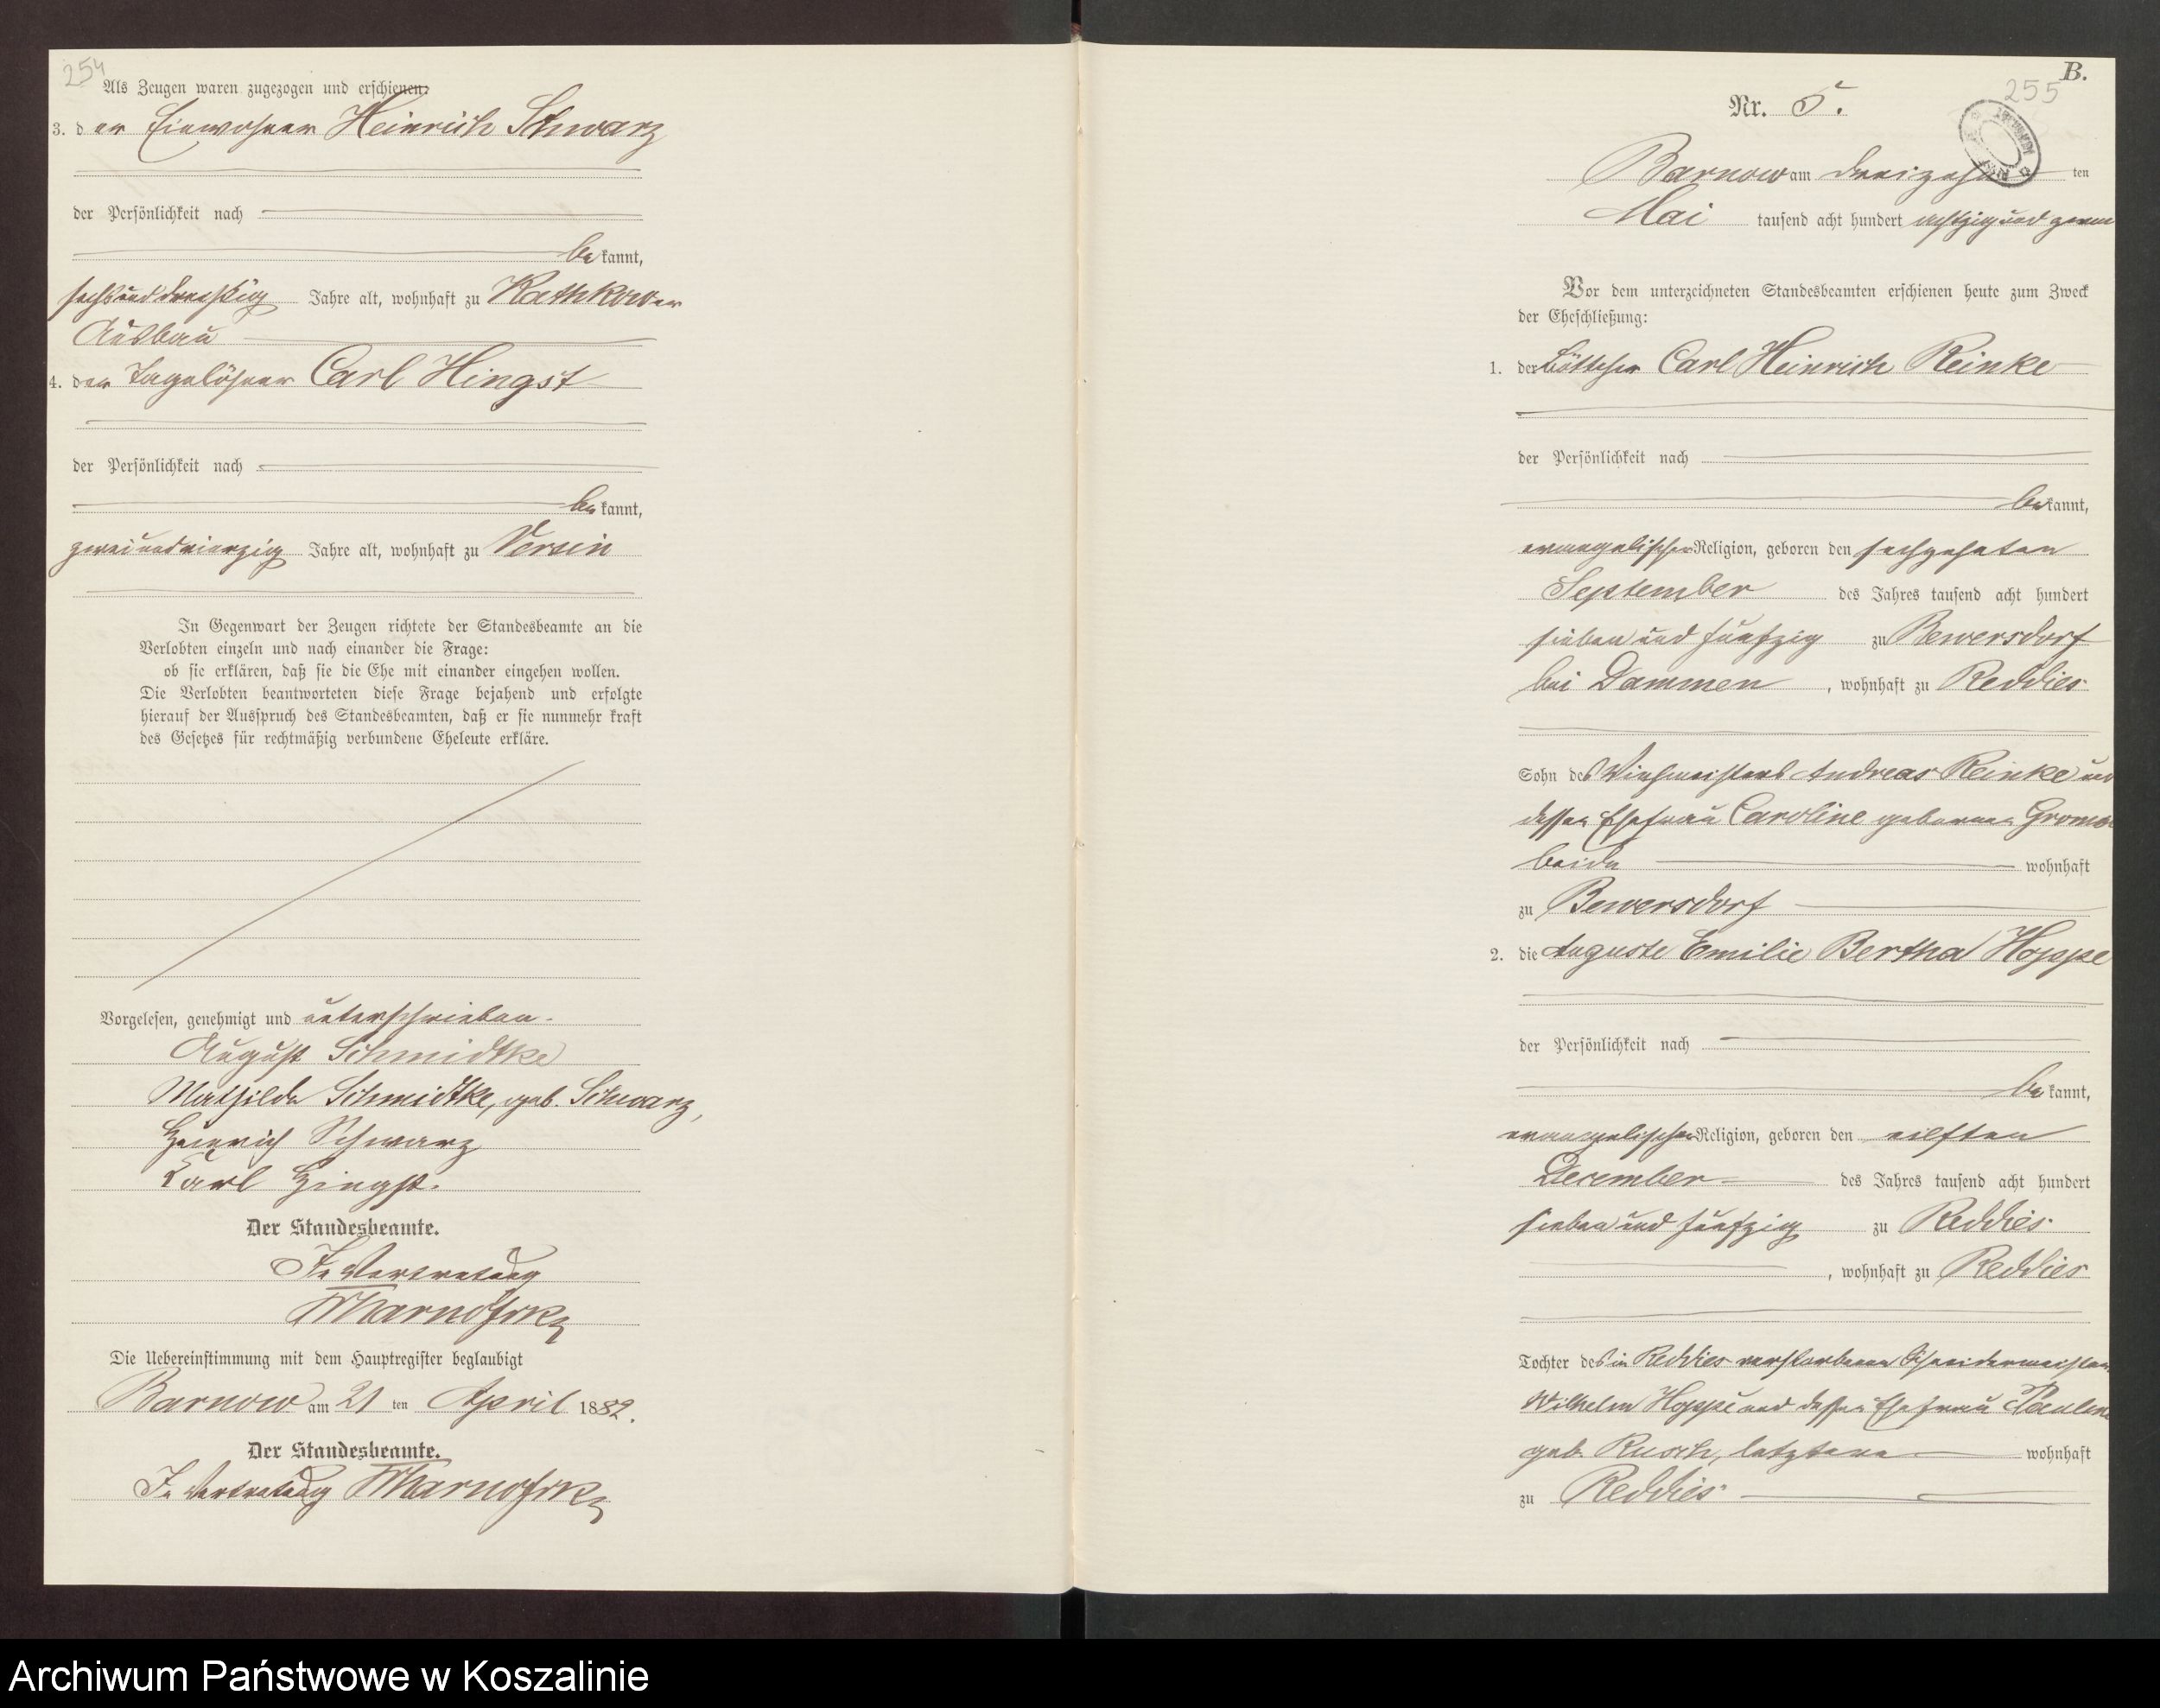 254
Als Zeugen waren zugezogen und erschienen:
3. der Einwohner Heinrich Schwarz
der Persönlichkeit nach
bekannt,
sechsunddreißig Jahre alt, wohnhaft zu Kathkower
Ausbau
4. der Tagelöhner Carl Hingst
der Persönlichkeit nach
bekannt,
zweiundvierzig Jahre alt, wohnhaft zu Versin
In Gegenwart der Zeugen richtete der Standesbeamte an die
Verlobten einzeln und nach einander die Frage:
ob sie erklären, daß sie die Ehe mit einander eingehen wollen.
Die Verlobten beantworteten diese Frage bejahend und erfolgte
hierauf der Ausspruch des Standesbeamten, daß er sie nunmehr kraft
des Gesetzes für rechtmäßig verbundene Eheleute erkläre.
Vorgelesen, genehmigt und unterschrieben.
August Schmidtke
Mathilde Schmidtke, geb. Schwarz,
Heinrich Schwarz
Carl Hingst.
Der Standesbeamte.
In Vertretung
Die Uebereinstimmung mit dem Hauptregister beglaubigt
Barnow am 21 ten April 1882.
Der Standesbeamte.
In Vertretung
B.
255
Nr. 5.
Barnow am dreizehn ten
Mai tausend acht hundert achtzig und zwei
Vor dem unterzeichneten Standesbeamten erschienen heute zum Zweck
der Eheschließung:
1. der Böttcher Carl Heinrich Reinke
der Persönlichkeit nach
bekannt,
evangelischer Religion, geboren den sechzehnten
September des Jahres tausend acht hundert
sieben und fünfzig zu Bewersdorf
bei Dammen, wohnhaft zu Reddies
Sohn des Viehmeisters Andreas Reinke und
dessen Ehefrau Caroline geborenen
beide wohnhaft
zu Bewersdorf
2. die Auguste Emilie Bertha Hoppe
der Persönlichkeit nach
bekannt,
evangelischer Religion, geboren den eilften
December des Jahres tausend acht hundert
sieben und fünfzig zu Reddies
, wohnhaft zu Reddies
Tochter des in Reddies verstorbenen Schneidermeisters
Wilhelm Hoppe und dessen Ehefrau Pauline
geb. Rusch, letztere wohnhaft
zu Reddies
Archiwum Państwowe w Koszalinie